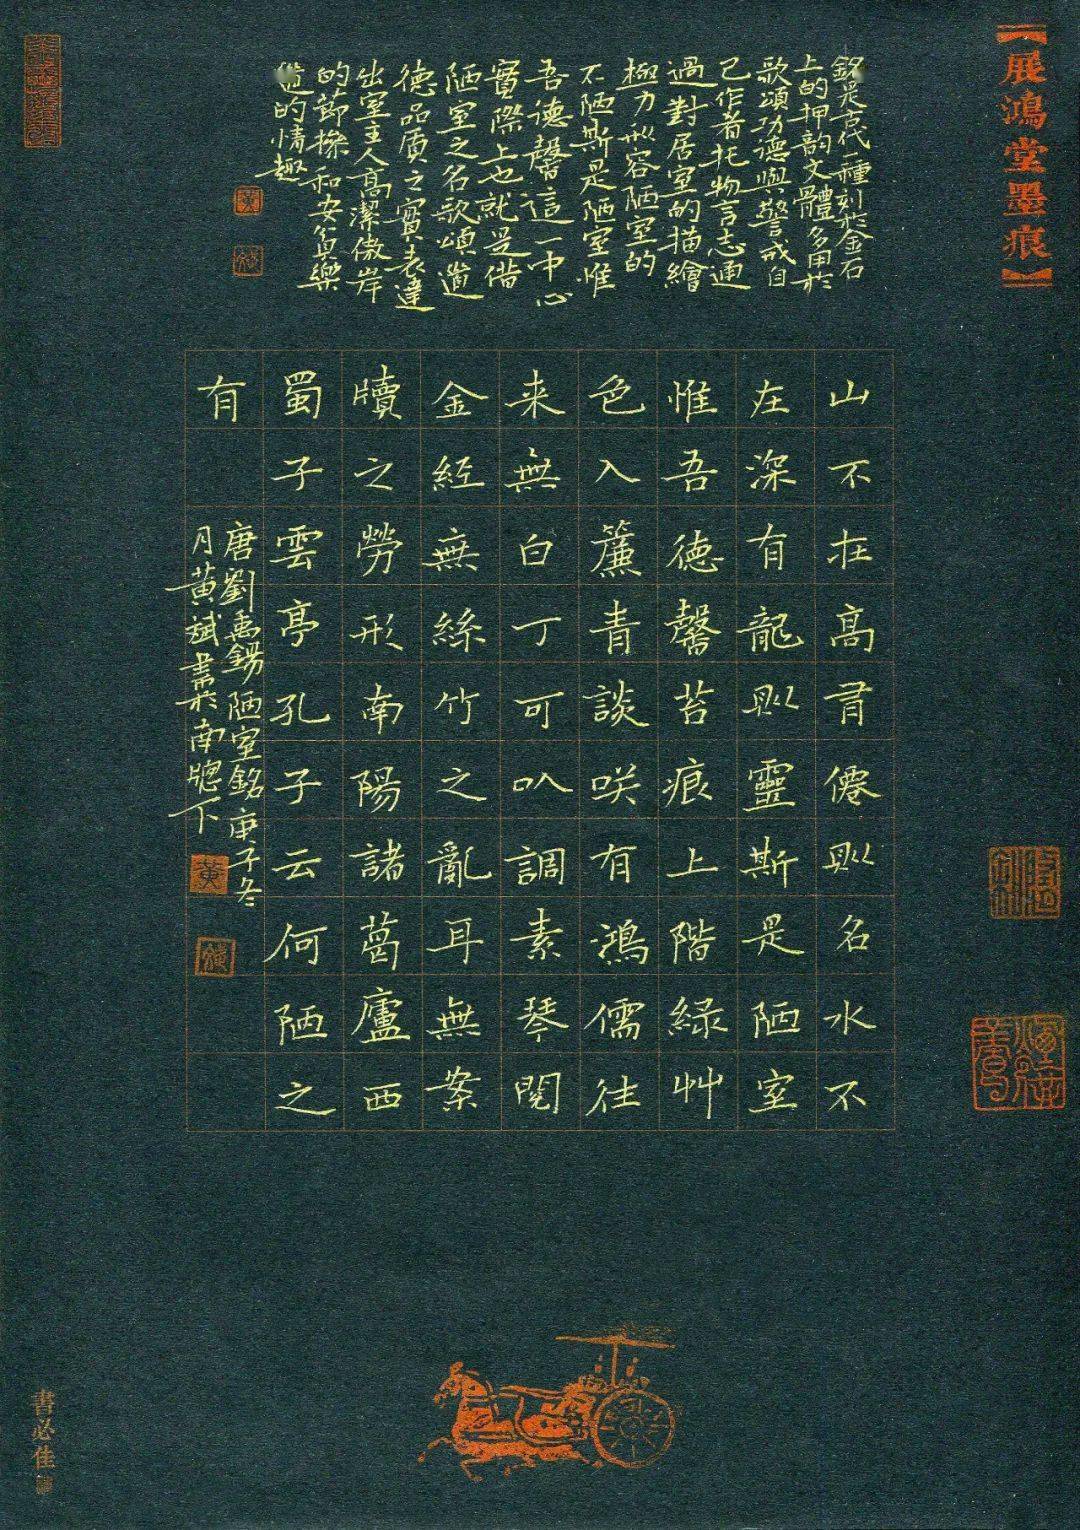 【展鴻堂墨痕】
銘是古代一種刻於金石
上的押韵文體多用於
歌頌功德與警戒自
己作者托物言志通
過對居室的描繪
極力形容陋室的
不陋斯是陋室惟
吾德馨這一中心
實際上也就是借
陋室之名歌頌道
德品质之實表達
出室主人高潔傲岸
的節操和安貧樂
道的情趣
山不在高有僊則名水不
在深有龍則靈斯是陋室
惟吾德馨苔痕上階緑艸
色入簾青談咲有鴻儒往
来無白丁可以調素琴閱
金經無絲竹之亂耳無案
牘之勞形南陽諸葛廬西
蜀子雲亭孔子云何陋之
有
唐劉禹錫陋室銘庚子冬
月黃斌書於南牕下
黃
書必佳